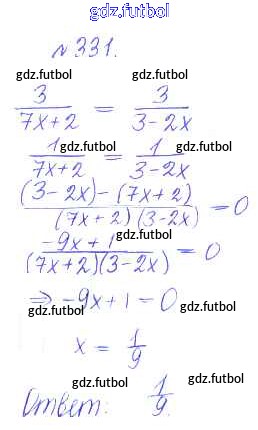 gdz.futbol
№331.
gdz.futbol gdz.futbol
3/(7x+2) = 3/(3-2x)
gdz.futbol
1/(7x+2) = 1/(3-2x)
gdz.futbol gdz.futbol
((3-2x)-(7x+2))/((7x+2)(3-2x)) = 0
gdz.futbol
(-9x+1)/((7x+2)(3-2x)) = 0
gdz.futbol
⇒ -9x+1=0
gdz.futbol gdz.futbol
x = 1/9
gdz.futbol
gdz.futbol gdz.futbol
Ответ: 1/9.
gdz.futbol